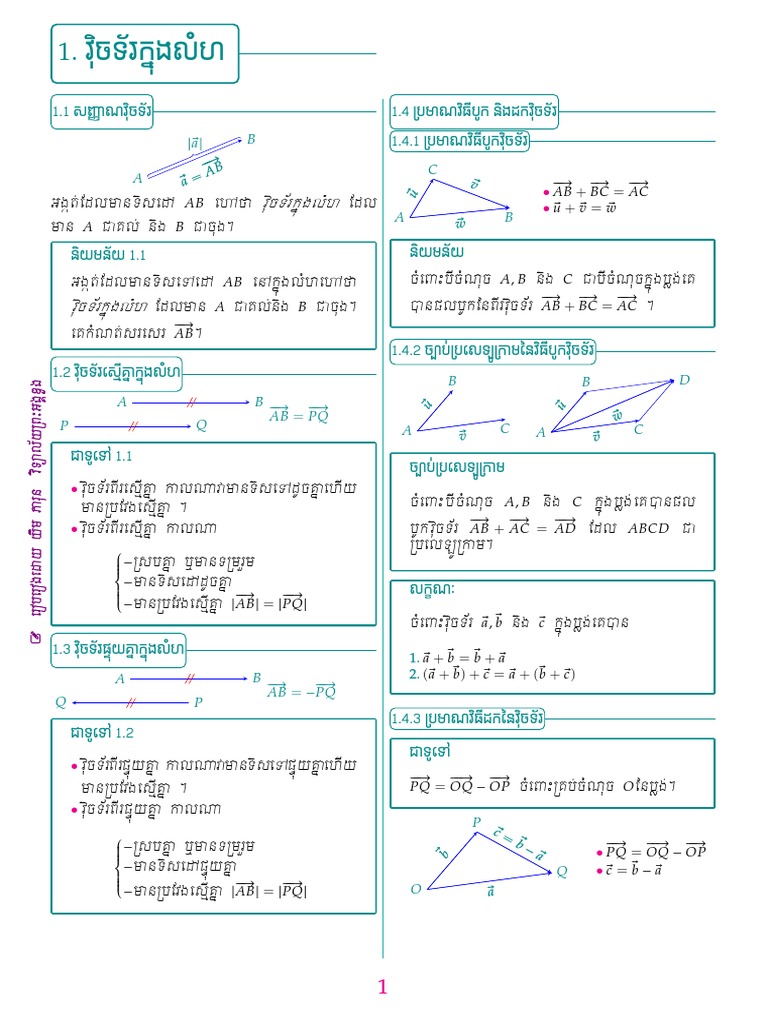 1. វ៉ិចទ័រក្នុងលំហ
1.1 សញ្ញាណវ៉ិចទ័រ
|a⃗|
B
A
a⃗ = AB⃗
អង្កត់ដែលមានទិសដៅ AB ហៅថា វ៉ិចទ័រក្នុងលំហ ដែល
មាន A ជាគល់ និង B ជាចុង។
និយមន័យ 1.1
អង្កត់ដែលមានទិសទៅដៅ AB នៅក្នុងលំហហៅថា
វ៉ិចទ័រក្នុងលំហ ដែលមាន A ជាគល់និង B ជាចុង។
គេកំណត់សរសេរ AB⃗។
1.2 វ៉ិចទ័រស្មើគ្នាក្នុងលំហ
A B
P Q
AB⃗ = PQ⃗
ជាទូទៅ 1.1
• វ៉ិចទ័រពីរស្មើគ្នា កាលណាវាមានទិសទៅដូចគ្នាហើយ
មានប្រវែងស្មើគ្នា ។
• វ៉ិចទ័រពីរស្មើគ្នា កាលណា
–ស្របគ្នា ឬមានទម្ររួម
–មានទិសដៅដូចគ្នា
–មានប្រវែងស្មើគ្នា |AB⃗| = |PQ⃗|
1.3 វ៉ិចទ័រផ្ទុយគ្នាក្នុងលំហ
A B
Q P
AB⃗ = −PQ⃗
ជាទូទៅ 1.2
• វ៉ិចទ័រពីរផ្ទុយគ្នា កាលណាវាមានទិសទៅផ្ទុយគ្នាហើយ
មានប្រវែងស្មើគ្នា ។
• វ៉ិចទ័រពីរផ្ទុយគ្នា កាលណា
–ស្របគ្នា ឬមានទម្ររួម
–មានទិសដៅផ្ទុយគ្នា
–មានប្រវែងស្មើគ្នា |AB⃗| = |PQ⃗|
1.4 ប្រមាណវិធីបូក និងដកវ៉ិចទ័រ
1.4.1 ប្រមាណវិធីបូកវ៉ិចទ័រ
C
u⃗ v⃗
A B
w⃗
• AB⃗ + BC⃗ = AC⃗
• u⃗ + v⃗ = w⃗
និយមន័យ
ចំពោះបីចំណុច A, B និង C ជាបីចំណុចក្នុងប្លង់គេ
បានផលបូកនៃពីរវ៉ិចទ័រ AB⃗ + BC⃗ = AC⃗ ។
1.4.2 ច្បាប់ប្រលេឡូក្រាមនៃវិធីបូកវ៉ិចទ័រ
B
u⃗
A C
v⃗
B D
u⃗ w⃗
A C
v⃗
ច្បាប់ប្រលេឡូក្រាម
ចំពោះបីចំណុច A, B និង C ក្នុងប្លង់គេបានផល
បូកវ៉ិចទ័រ AB⃗ + AC⃗ = AD⃗ ដែល ABCD ជា
ប្រលេឡូក្រាម។
លក្ខណៈ
ចំពោះវ៉ិចទ័រ a⃗, b⃗ និង c⃗ ក្នុងប្លង់គេបាន
1. a⃗ + b⃗ = b⃗ + a⃗
2. (a⃗ + b⃗) + c⃗ = a⃗ + (b⃗ + c⃗)
1.4.3 ប្រមាណវិធីដកនៃវ៉ិចទ័រ
ជាទូទៅ
PQ⃗ = OQ⃗ − OP⃗ ចំពោះគ្រប់ចំណុច O នៃប្លង់។
P
b⃗
c⃗ = b⃗ − a⃗
Q
O
a⃗
• PQ⃗ = OQ⃗ − OP⃗
• c⃗ = b⃗ − a⃗
រៀបរៀងដោយ យឹម ភារុន វិទ្យាល័យព្រះអង្គឌួង
1